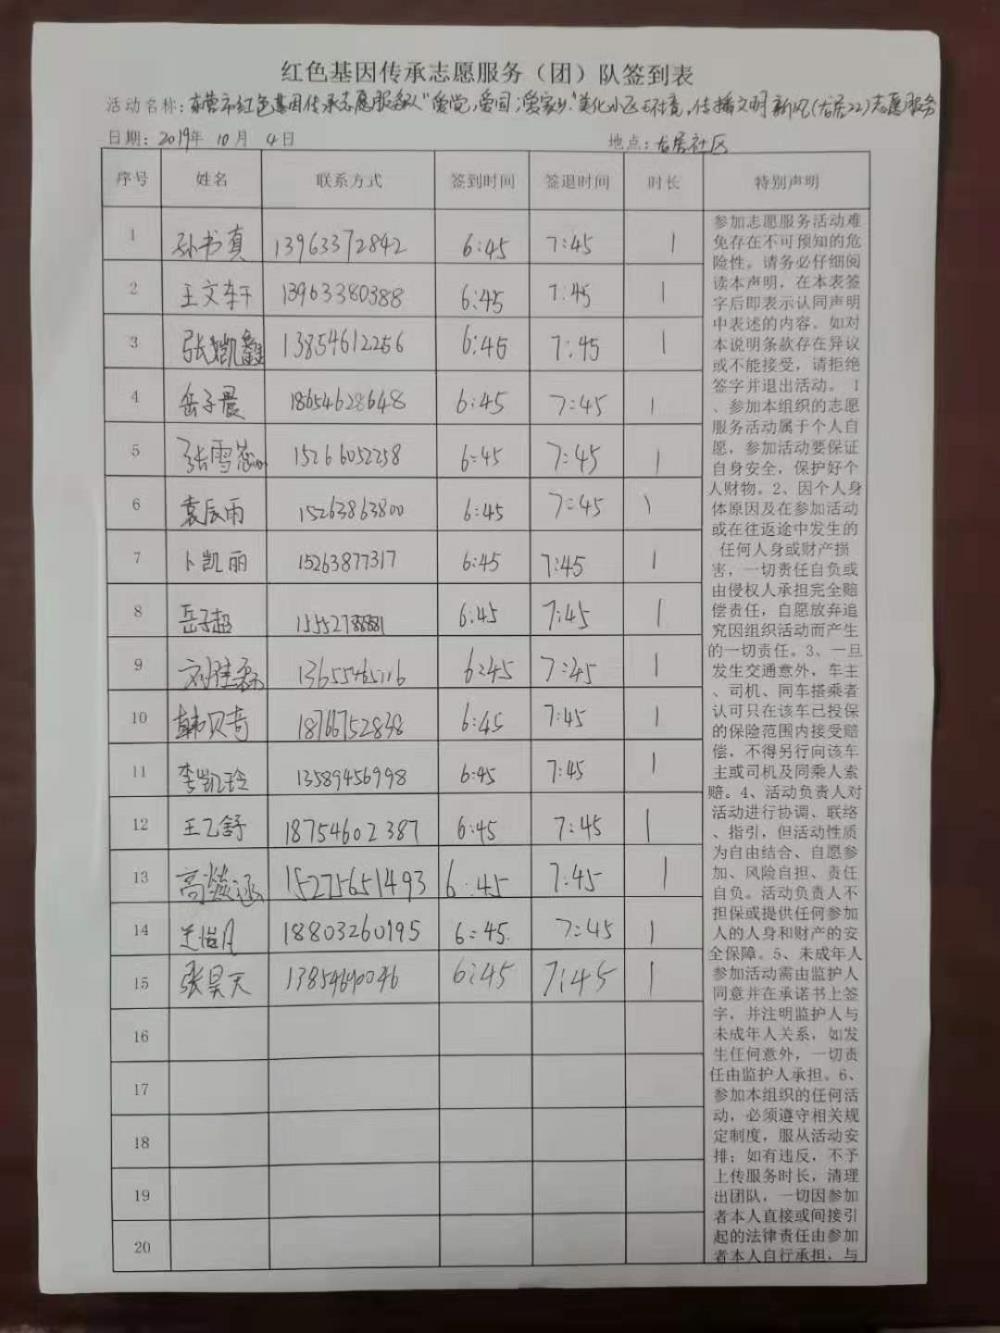 红色基因传承志愿服务（团）队签到表
活动名称：东营市红色基因传承志愿服务队"爱党,爱国,爱家乡"美化小区环境,传播文明新风(右居22)志愿服务
日期：2019年 10月 4日 地点：右居社区
序号 姓名 联系方式 签到时间 签退时间 时长 特别声明
1 孙书真 13963372842 6:45 7:45 1
2 王文轩 13963380388 6:45 7:45 1
3 张凯鑫 13854612256 6:45 7:45 1
4 岳子晨 18654628648 6:45 7:45 1
5 张雪 15266052258 6:45 7:45 1
6 袁辰雨 15263863800 6:45 7:45 1
7 卜凯丽 15263877317 6:45 7:45 1
8 岳子超 15552788881 6:45 7:45 1
9 刘佳磊 13655465116 6:45 7:45 1
10 韩贝奇 18766752838 6:45 7:45 1
11 李凯玲 13589456998 6:45 7:45 1
12 王乙舒 18754602387 6:45 7:45 1
13 高涵 15275651493 6:45 7:45 1
14 兰恺凡 18803260195 6:45 7:45 1
15 张昊天 13854690046 6:45 7:45 1
16
17
18
19
20
参加志愿服务活动难
免存在不可预知的危
险性。请务必仔细阅
读本声明，在本表签
字后即表示认同声明
中表述的内容。如对
本说明条款存在异议
或不能接受，请拒绝
签字并退出活动。 1
、参加本组织的志愿
服务活动属于个人自
愿，参加活动要保证
自身安全，保护好个
人财物。2、因个人身
体原因及在参加活动
或在往返途中发生的
任何人身或财产损
害，一切责任自负或
由侵权人承担完全赔
偿责任，自愿放弃追
究因组织活动而产生
的一切责任。3、一旦
发生交通意外，车主
、司机、同车搭乘者
认可只在该车已投保
的保险范围内接受赔
偿，不得另行向该车
主或司机及同乘人索
赔。4、活动负责人对
活动进行协调、联络
、指引，但活动性质
为自由结合、自愿参
加、风险自担、责任
自负。活动负责人不
担保或提供任何参加
人的人身和财产的安
全保障。5、未成年人
参加活动需由监护人
同意并在承诺书上签
字，并注明监护人与
未成年人关系，如发
生任何意外，一切责
任由监护人承担。6、
参加本组织的任何活
动，必须遵守相关规
定制度，服从活动安
排；如有违反，不予
上传服务时长，清理
出团队，一切因参加
者本人直接或间接引
起的法律责任由参加
者本人自行承担，与